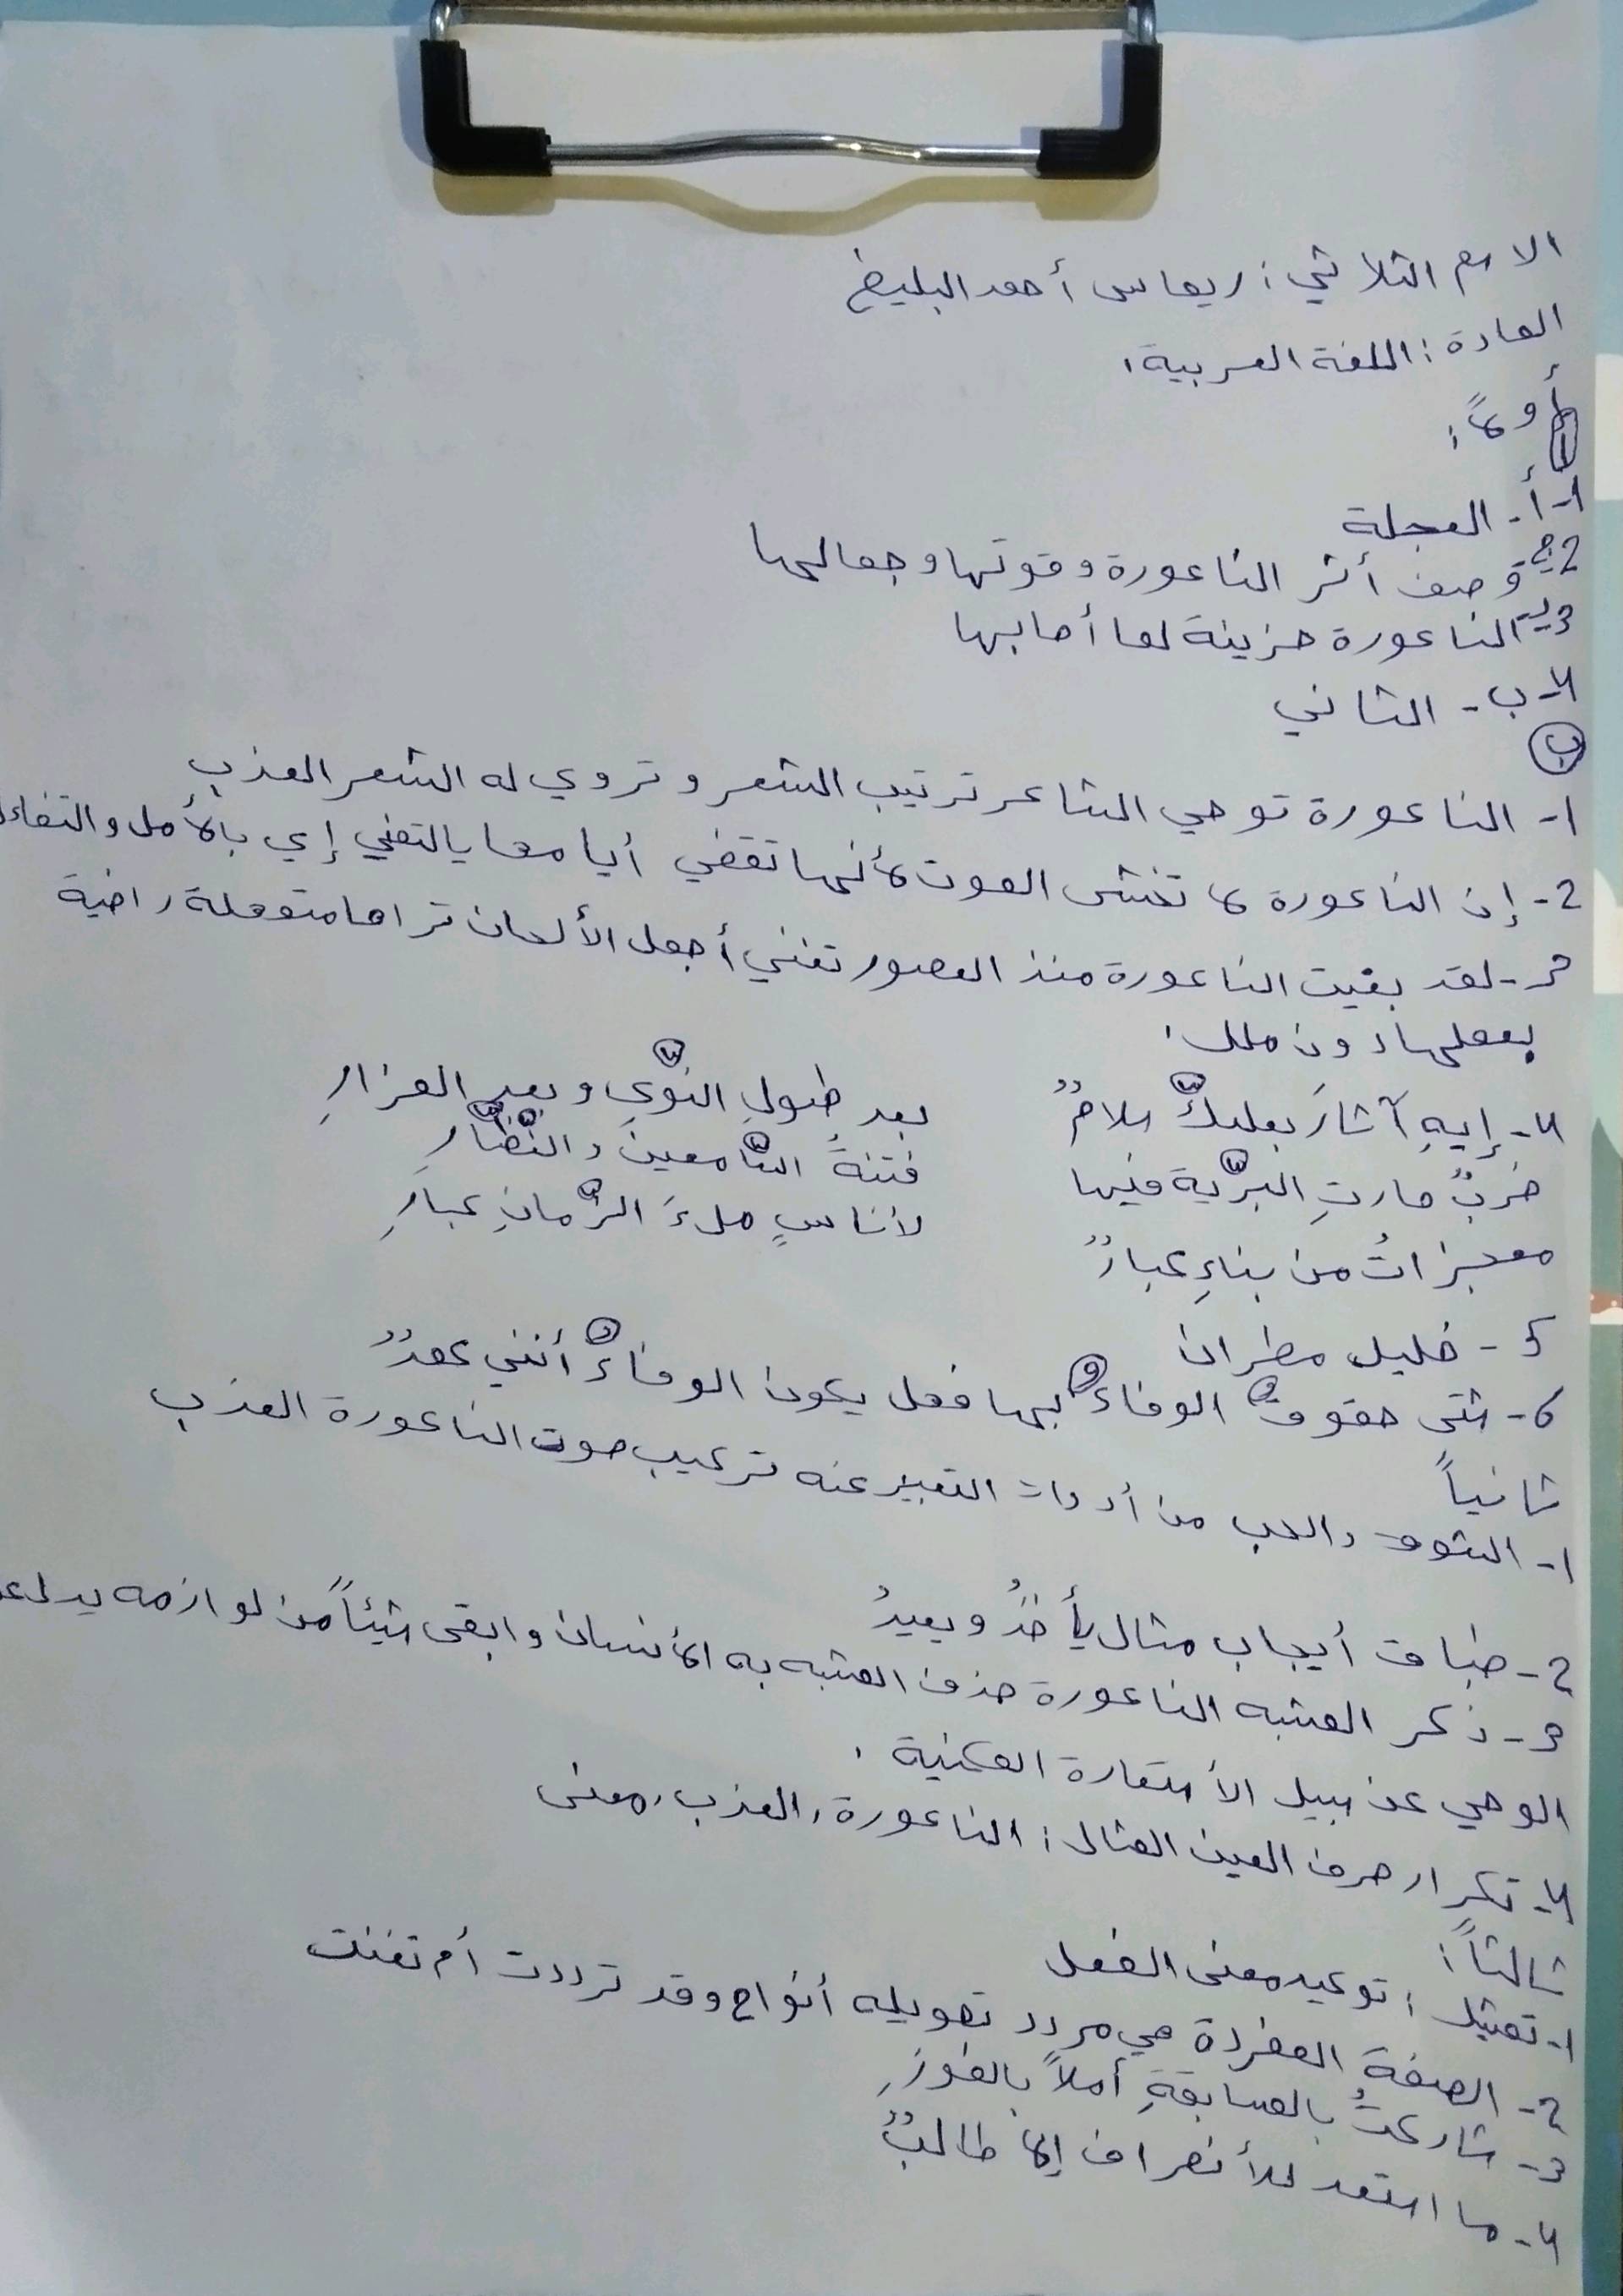 الاسم الثلاثي: ريماس أحمد البليخ
المادة: اللغة العربية.
أولاً:
1- أ- العجلة
2 ج- وصف أثر الناعورة وقوتها وجمالها
3 د- الناعورة حزينة لما أصابها
4- ب- الثاني
ب
1- الناعورة توحي الشاعر ترتيب الشعر وتروي له الشعر العذب
2- إن الناعورة لا تخشى الموت لأنها تقضي أيامها بالتغني إي بالأمل والتفاءل
3- لقد بقيت الناعورة منذ العصور تغني أجمل الألحان تراها متمهلة راضية
بعملها دون ملل.
4- إيهِ آثارَ بعلبكَّ سلامٌ بعد طولِ النّوى وبعدِ المزارِ
خربٌ حارتِ البريّة فيها فتنةُ السّامعينَ والنّظّارِ
معجزاتٌ من بناءٍ كبارٌ لأناسٍ ملءَ الزّمانِ كبارِ
5- خليل مطران
6- شتى حقوق الوفاء بها فهل يكون الوفاء أنني كمدٌ
ثانياً
1- الشوق والحب من أدوات التعبير عنه تركيب صوت الناعورة العذب
2- طباق أيجاب مثال يأخذُ ويعيدُ
3- ذكر المشبه الناعورة حذف المشبه به الأنسان وابقى شيئاً من لوازمه يدل
الوحي عن سبيل الأستعارة المكنية.
4- تكرار حرف العين المثال: الناعورة، العذب، معنى
ثالثاً:
1- تمثيل: توكيد معنى الفعل
2- الصفة المفردة هي مردد تحويله أنواح وقد ترددت أم تغنت
3- شاركتُ بالمسابقةِ أملاً بالفوزِ
4- ما استعد للأنصراف إلا طالبٌ